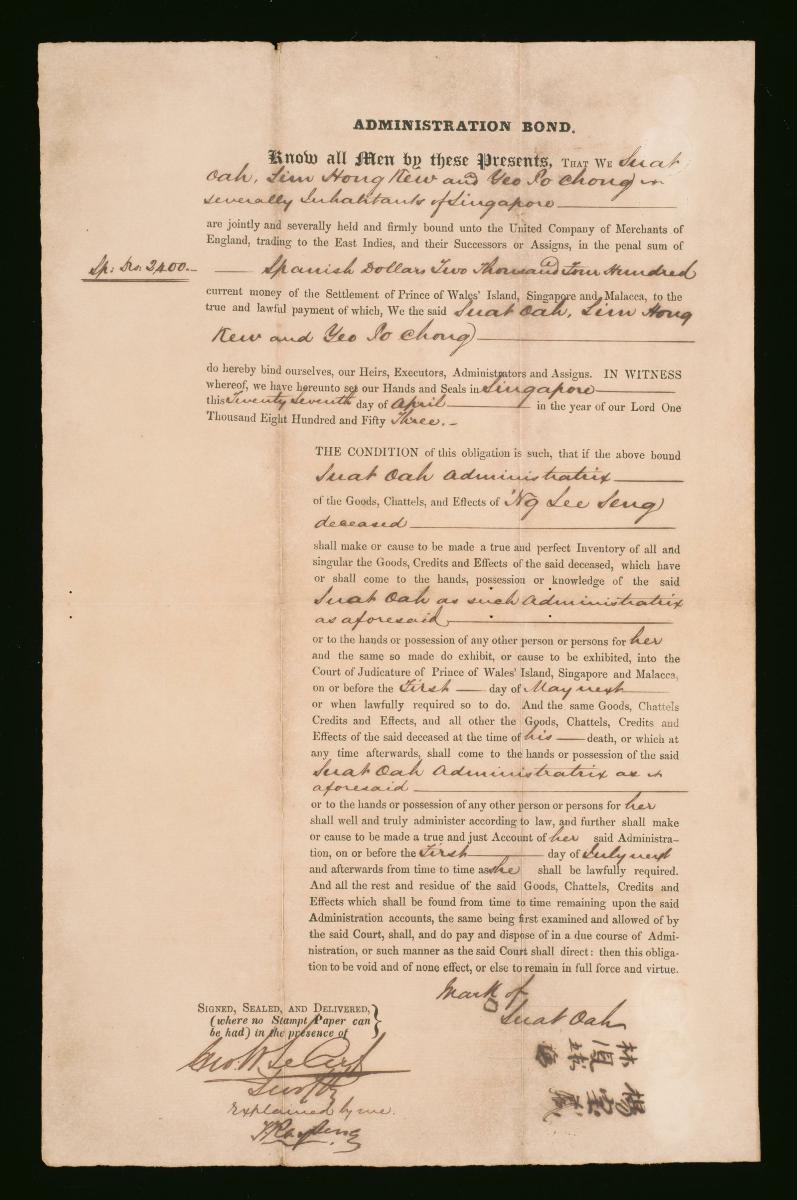 ADMINISTRATION BOND.
Know all Men by these Presents, THAT WE Suat
Oah, Lim Hong Kew and Yeo Po Chong
severally Inhabitants of Singapore
are jointly and severally held and firmly bound unto the United Company of Merchants of
England, trading to the East Indies, and their Successors or Assigns, in the penal sum of
Sp: Drs: 2400.-
Spanish Dollars Two Thousand Four Hundred
current money of the Settlement of Prince of Wales' Island, Singapore and Malacca, to the
true and lawful payment of which, We the said Suat Oah, Lim Hong
Kew and Yeo Po Chong
do hereby bind ourselves, our Heirs, Executors, Administrators and Assigns. IN WITNESS
whereof, we have hereunto set our Hands and Seals in Singapore
this Twenty Seventh day of April in the year of our Lord One
Thousand Eight Hundred and Fifty Three.-
THE CONDITION of this obligation is such, that if the above bound
Suat Oah Administratrix
of the Goods, Chattels, and Effects of Ng Lee Seng
deceased
shall make or cause to be made a true and perfect Inventory of all and
singular the Goods, Credits and Effects of the said deceased, which have
or shall come to the hands, possession or knowledge of the said
Suat Oah as such Administratrix
as aforesaid
or to the hands or possession of any other person or persons for her
and the same so made do exhibit, or cause to be exhibited, into the
Court of Judicature of Prince of Wales' Island, Singapore and Malacca,
on or before the First day of May next
or when lawfully required so to do. And the same Goods, Chattels
Credits and Effects, and all other the Goods, Chattels, Credits and
Effects of the said deceased at the time of his death, or which at
any time afterwards, shall come to the hands or possession of the said
Suat Oah Administratrix as
aforesaid
or to the hands or possession of any other person or persons for her
shall well and truly administer according to law, and further shall make
or cause to be made a true and just Account of her said Administra-
tion, on or before the First day of July next
and afterwards from time to time as she shall be lawfully required.
And all the rest and residue of the said Goods, Chattels, Credits and
Effects which shall be found from time to time remaining upon the said
Administration accounts, the same being first examined and allowed of by
the said Court, shall, and do pay and dispose of in a due course of Admi-
nistration, or such manner as the said Court shall direct: then this obliga-
tion to be void and of none effect, or else to remain in full force and virtue.
Mark of
Suat Oah
SIGNED, SEALED, AND DELIVERED,
(where no Stampt Paper can
be had) in the presence of
Explained by me.
林